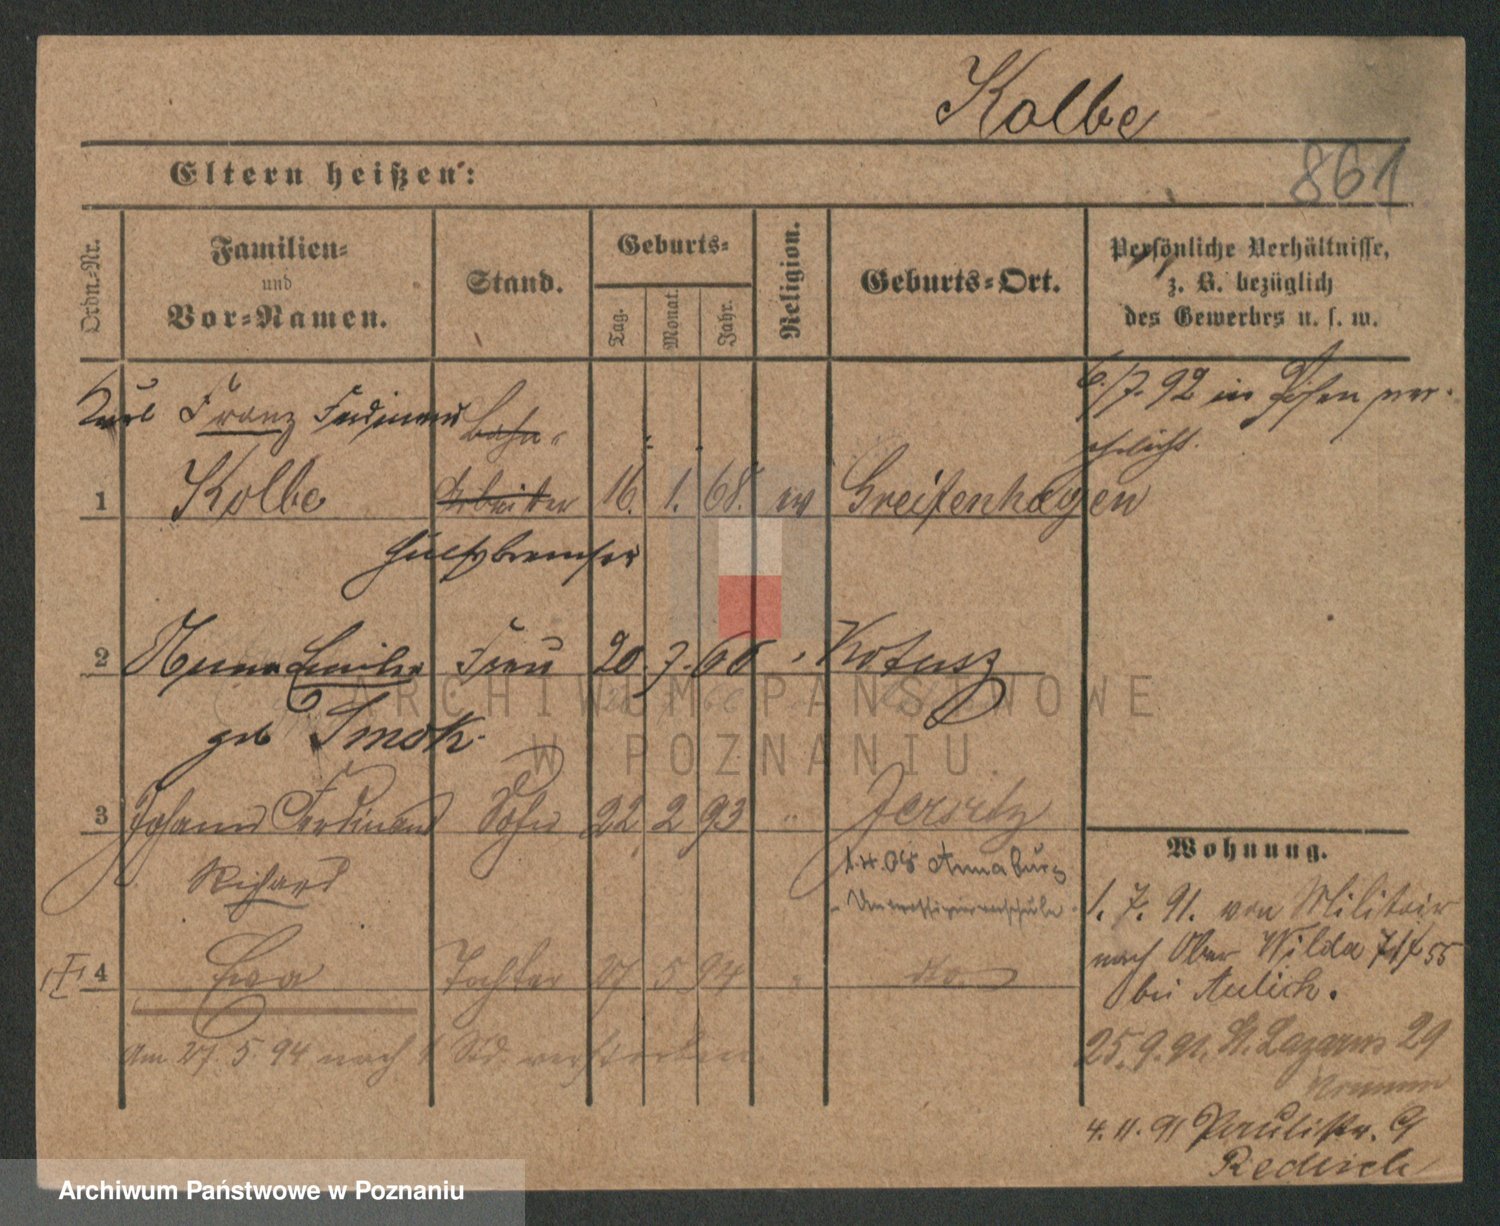 Kolbe
861
Eltern heißen:
Ordn.-Nr.
Familien-
und
Vor-Namen.
Stand.
Geburts-
Tag.
Monat.
Jahr.
Religion.
Geburts-Ort.
Persönliche Verhältnisse,
z. B. bezüglich
des Gewerbes u. s. w.
Karl Franz Ferdinand Bahn-
6./7. 92 in Posen ver-
ehelicht.
1 Kolbe Arbeiter 16. 1. 68. ev Greifenhagen
Hülfsbremser
2 Anna Emilie Frau 20. 7. 68 "
geb Smok
3 Johann Ferdinand Sohn 22 2 93 " Jersitz
Richard
1.4.08 Annaburg
Unteroffiziervorschule
4 Eva Tochter 27 5 94 " do
Am 27. 5. 94 nach 1 Std. verstorben
Wohnung.
1. 7. 91. von Militair
nach Ober Wilda
bei Aulich.
25. 9. 91. St. Lazarus 29
4. 11. 91 Paulistr. 9
ARCHIWUM PAŃSTWOWE
W POZNANIU
Archiwum Państwowe w Poznaniu